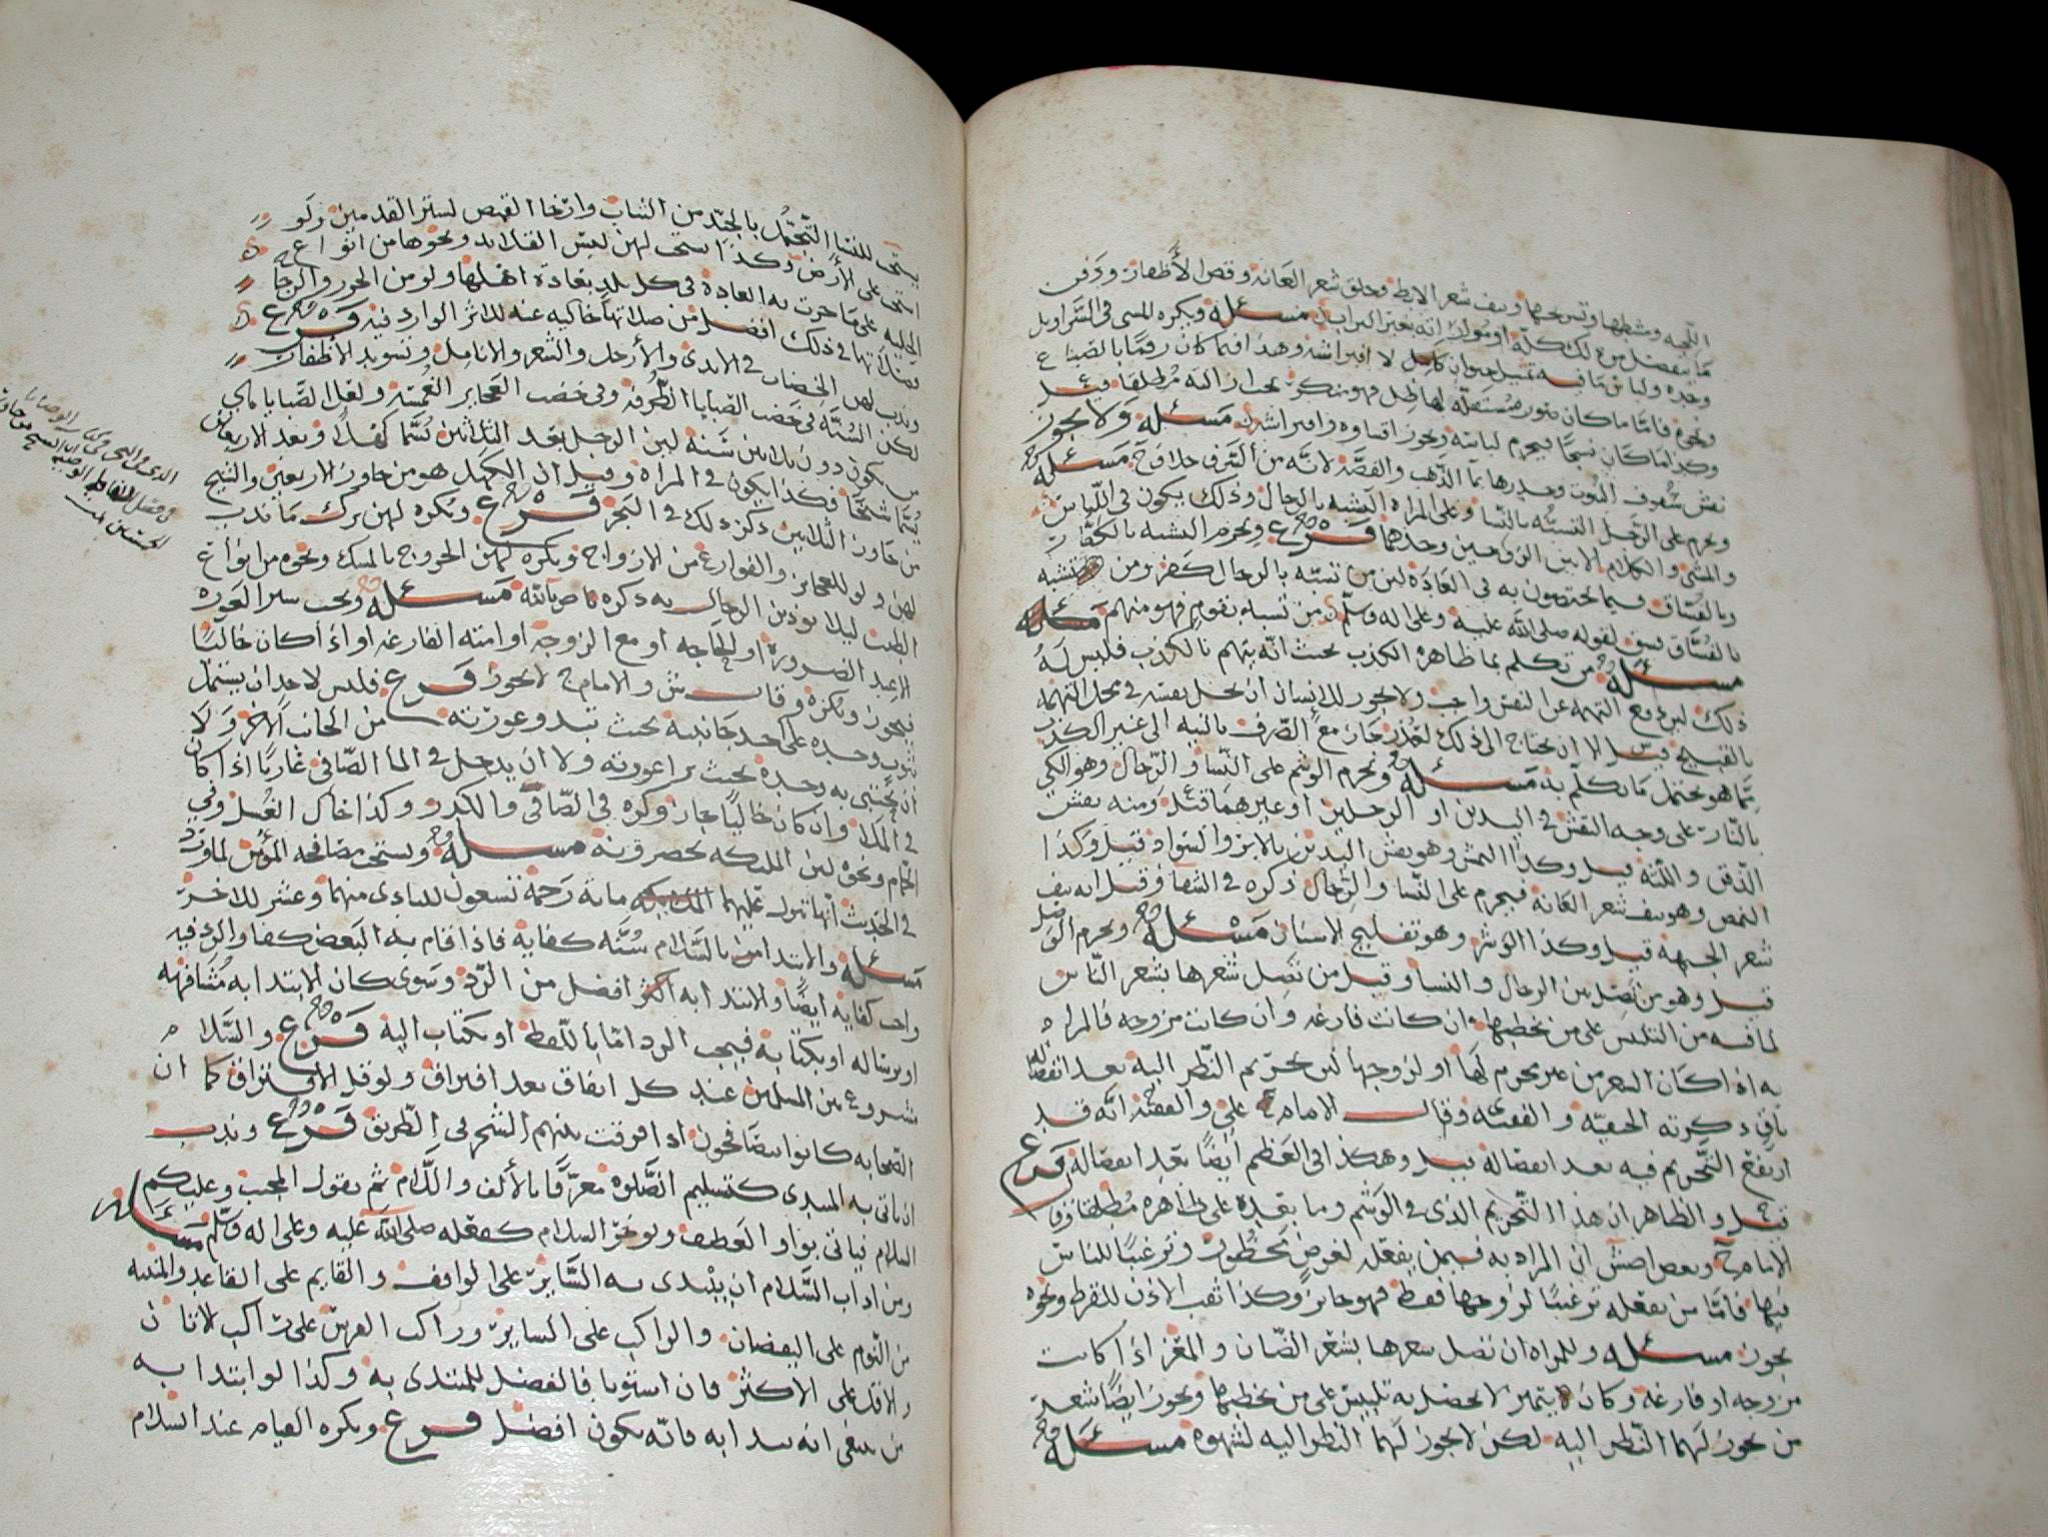 اللحيه ومشطها وتسريحها ونتف شعر الابط وحلق شعر العانه وقص الأظفار ودفن
ما ينفصل من ذلك كله او مواراته بغير التراب مسئله ويكره المشي في السراويل
وحده ولباس ما فيه تمثيل حيوان كامل لا افتراشه وهذا فيما كان رقما بالصباغ
ونحوه فاما ما كان صور مستقله لها ظل فهو منكر تجب ازالته مطلقا قيل
وكذا ما كان نسجا فيحرم لباسه ويجوز اقتناوه وافتراشه مسئله ولا يجوز
نقش سقوف البيوت وجدرها بماء الذهب والفضه لانه من السرف خلاف ح مسئله
ويحرم على الرجل التشبه بالنساء وعلى المراه التشبه بالرجال وذلك يكون في اللباس
والمشي والكلام الا بين الزوجين وحدهما فرع ويحرم التشبه بالكفار
وبالفساق فيما يختصون به في العاده لكن من تشبه بالرجال كفر ومن تشبه
بالفساق فسق لقوله صلى الله عليه وعلى اله وسلم من تشبه بقوم فهو منهم مسئله
مسئله من تكلم بما ظاهره الكذب بحيث انه يتهم بالكذب فليس له
ذلك لان دفع التهمه عن النفس واجب ولا يجوز للانسان ان يحل نفسه في محل التهمه
بالقبيح قيل الا ان يحتاج الى ذلك لعذر جاز مع الصرف بالنيه الى غير الكذب
مما هو يحتمل ما تكلم به مسئله ويحرم الوشم على النساء والرجال وهو الكي
بالنار على وجه النقش في اليدين او الرجلين او غيرهما قيل ومنه نقش
الذقن واللثه قيل وكذا النمش وهو نقش اليدين بالابر والسواد قيل وكذا
النمص وهو نتف شعر العانه فيحرم على النساء والرجال ذكره في الشفا وقيل انه نتف
شعر الجبهه قيل وكذا الوشر وهو تفليج الاسنان مسئله ويحرم الوصل
قيل وهو من تصل بين الرجال والنسا وقيل من تصل شعرها بشعر الناس
لما فيه من التلبس على من يخطبها ان كانت فارغه وان كانت مزوجه فالمراه
به اذا كان الشعر من غير محرم لها او لزوجها لان تحريم النظر اليه بعد انفصاله
باق ذكرته الحنفيه والفقيه وقال الامام علي والفقيه انه قد
ارتفع التحريم فيه بعد انفصاله قيل وهكذا في العظم ايضا بعد انفصاله فرع
قيل والظاهر ان هذا التحريم الذي في الوشم وما بعده على ظاهره مطلقا وقال
الامام ح وبعض اصش ان المراد به فيمن يفعله لغرض محظور وترغيبا للناس
فيها فاما من تفعله ترغيبا لزوجها فقط فهو جائز وكذا ثقب الاذن للقرط ونحوه
يجوز مسئله وللمراه ان تصل شعرها بشعر الضان والمعز اذا كانت
مزوجه او فارغه وكان يتميز لا يحصل به تلبيس على من يخطبها ويجوز ايضا شعر
من يجوز لهما النظر اليه لكن لا يجوز لهما النظر اليه لشهوه مسئله
يستحب للنساء التجمل بالجيد من الثياب وارخا القميص لستر القدمين ولو
انسحب على الارض وكذا استحب لهن لبس القلائد ونحوها من انواع
الحليه على ما جرت به العاده في كل بلد بعادة اهلها ولو من الخرز والزجاج
فصلاتها في ذلك افضل من صلاتها خاليه عنه للاثر الوارد فيه فرع
وندب لهن الخضاب في الايدي والأرجل والشعر والانامل وتسويد الأظفار
لكن السنه في خضب الصبايا الطرفه وفي خضب العجايز الغمسه ولعل الصبايا هي
من يكون دون ثلاثين سنه لان الرجل بعد الثلاثين يسما كهلا وبعد الاربعين
يسما شيخا فكذا يكون في المراه وقيل ان الكهل هو من جاوز الاربعين والشيخ
من جاوز الثلاثين ذكر ذلك في البحر فرع ويكره لهن ترك ما ندب
لهن ولو للعجايز والفوارغ من الازواج ويكره لهن الخروج بالمسك ونحوه من انواع
الطيب ليلا يوذين الرجال به ذكره م بالله مسئله ويجب ستر العوره
الا عند الضروره او الحاجه او مع الزوجه او امته الفارغه او اذا كان خاليا
فيجوز ويكره وقال ش والامام ح لا يجوز فرع فليس لاحد ان يشتمل
بثوب وحده على احد جانبيه بحيث تبدو عورته من الجانب الاخر ولا
ان يحتبي به وحده بحيث يرا عورته ولا ان يدخل في الما الصافي عاريا اذا كان
في الملا وان كان خاليا جاز وكره في الصافي والكدر وكذا حال الغسل وفي
الحمام ونحوه لان الملئكه تحضره مسئله ويستحب مصافحة المؤمن لما ورد
في الحديث انها تنزل عليهما مائة رحمه تسعون للبادي منهما وعشر للاخر
مسئله والابتدا بالسلام سنه كفايه فاذا قام به البعض كفا والرد فيه
واجب كفايه ايضا والابتدا به اكثر افضل من الرد وسوى كان الابتدا به مشافهه
او برساله او بكتابه فيجب الرد اما باللفظ او بكتاب اليه فرع والسلام
مشروع بين المسلمين عند كل اتفاق بعد افتراق ولو قل الافتراق كما ان
الصحابه كانوا يتصافحون اذا فرقت بينهم الشجر في الطريق فرع وندب
ان ياتي به المبتدي كتسليم الصلوه معرفا بالألف واللام ثم يقول المجيب وعليكم
السلام فياتي بواو العطف ولو اخر السلام كفعله صلى الله عليه وعلى اله وسلم مسئله
ومن اداب السلام ان يبتدى به الساير على الواقف والقايم على القاعد والمنتبه
من النوم على اليقضان والراكب على الساير وراكب الفرس على راكب الاتان
والاقل على الاكثر فان استويا فالفضل للمبتدى به وكذا لو ابتدا به
من ينبغي انه يبدا به فانه يكون افضل فرع ويكره القيام عند السلام